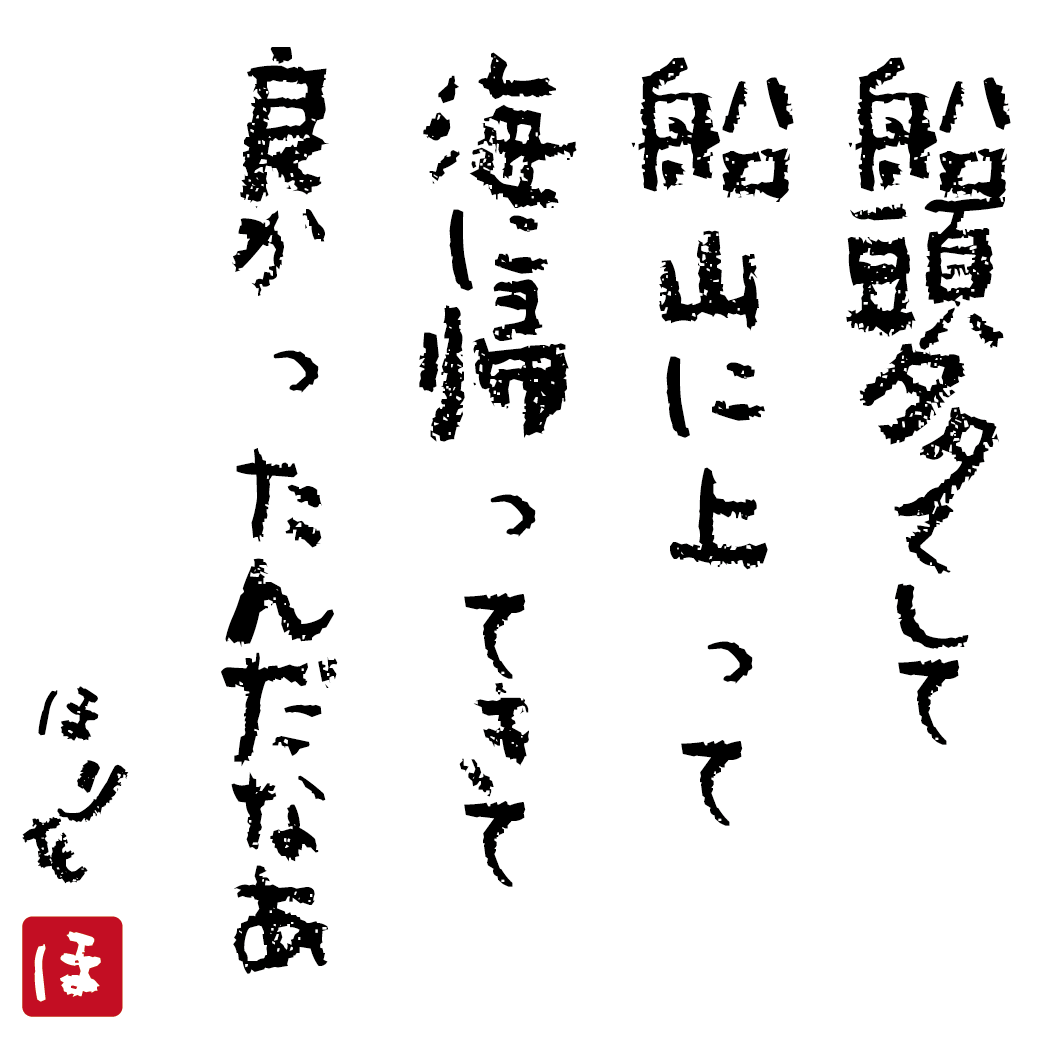 船頭多くして
船山に上って
海に帰ってきて
良かったんだなあ
ほりを
ほ